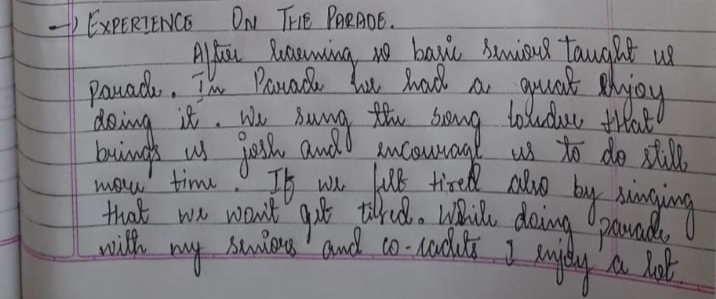 →) EXPERIENCE ON THE PARADE.
After learning so basic seniors taught us
parade. In Parade we had a great enjoy
doing it. We sung the song louder that
brings us josh and encourage us to do still
more time. If we felt tired also by singing
that we won't get tired. While doing parade
with my seniors and co-cadets I enjoy a lot.